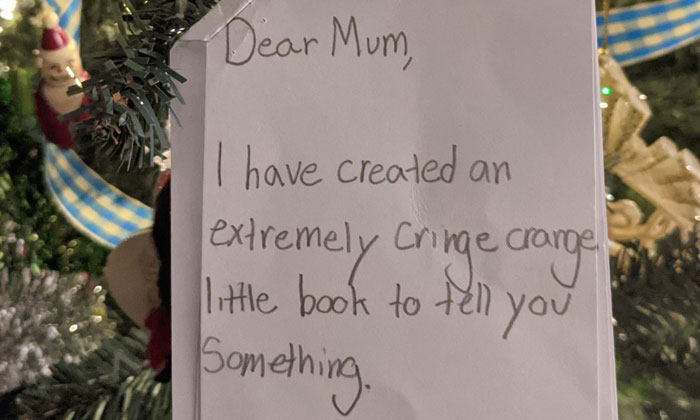 Dear Mum,
I have created an
extremely cringe crange
little book to tell you
Something.